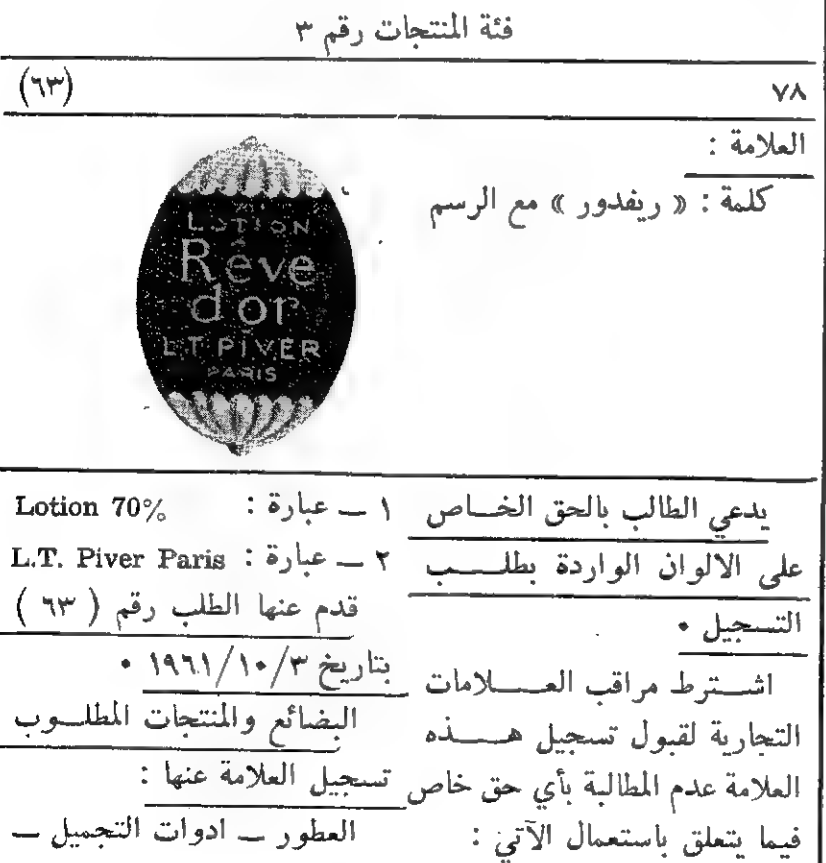 فئة المنتجات رقم ٣
٧٨ (٦٣)
العلامة :
كلمة : « ريفدور » مع الرسم
LOTION
Rêve
d'or
L.T. PIVER
PARIS
يدعي الطالب بالحق الخـــاص
على الالوان الواردة بطلـــب
التسجيل .
اشـــترط مراقب العـــــلامات
التجارية لقبول تسجيل هـــــذه
العلامة عدم المطالبة بأي حق خاص
فيما يتعلق باستعمال الآتي :
١ ــ عبارة : Lotion 70%
٢ ــ عبارة : L.T. Piver Paris
قدم عنها الطلب رقم ( ٦٣ )
بتاريخ ١٩٦١/١٠/٣ .
البضائع والمنتجات المطلـــوب
تسجيل العلامة عنها :
العطور ــ ادوات التجميل ــ